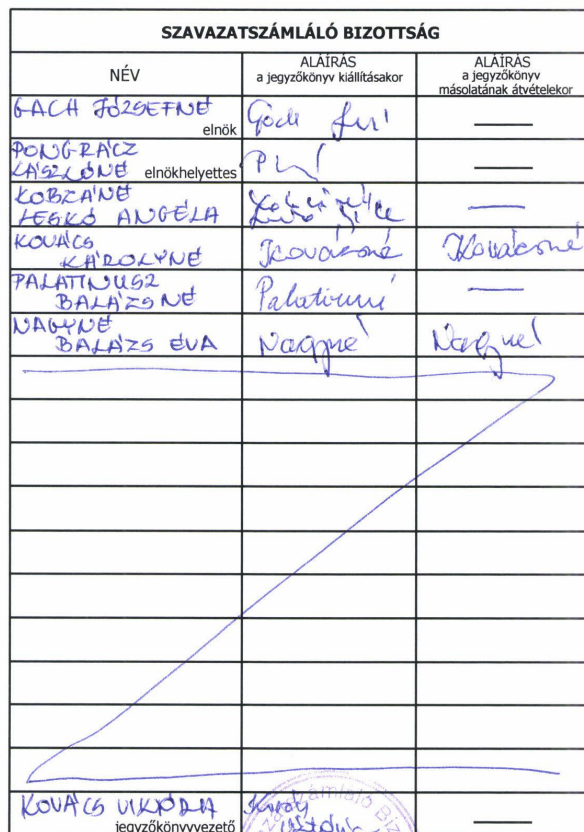 SZAVAZATSZÁMLÁLÓ BIZOTTSÁG
NÉV
ALÁÍRÁS
a jegyzőkönyv kiállításakor
ALÁÍRÁS
a jegyzőkönyv
másolatának átvételekor
GACH JÓZSEFNÉ
elnök
PONGRÁCZ
LÁSZLÓNÉ elnökhelyettes
KOBZÁNÉ
LESKÓ ANGÉLA
KOVÁCS
KÁROLYNÉ
Kovácsné
Kovácsné
PALATINUSZ
BALÁZSNÉ
NAGYNÉ
BALÁZS ÉVA
Nagyné
Nagyné
KOVÁCS VIKTÓRIA
jegyzőkönyvvezető